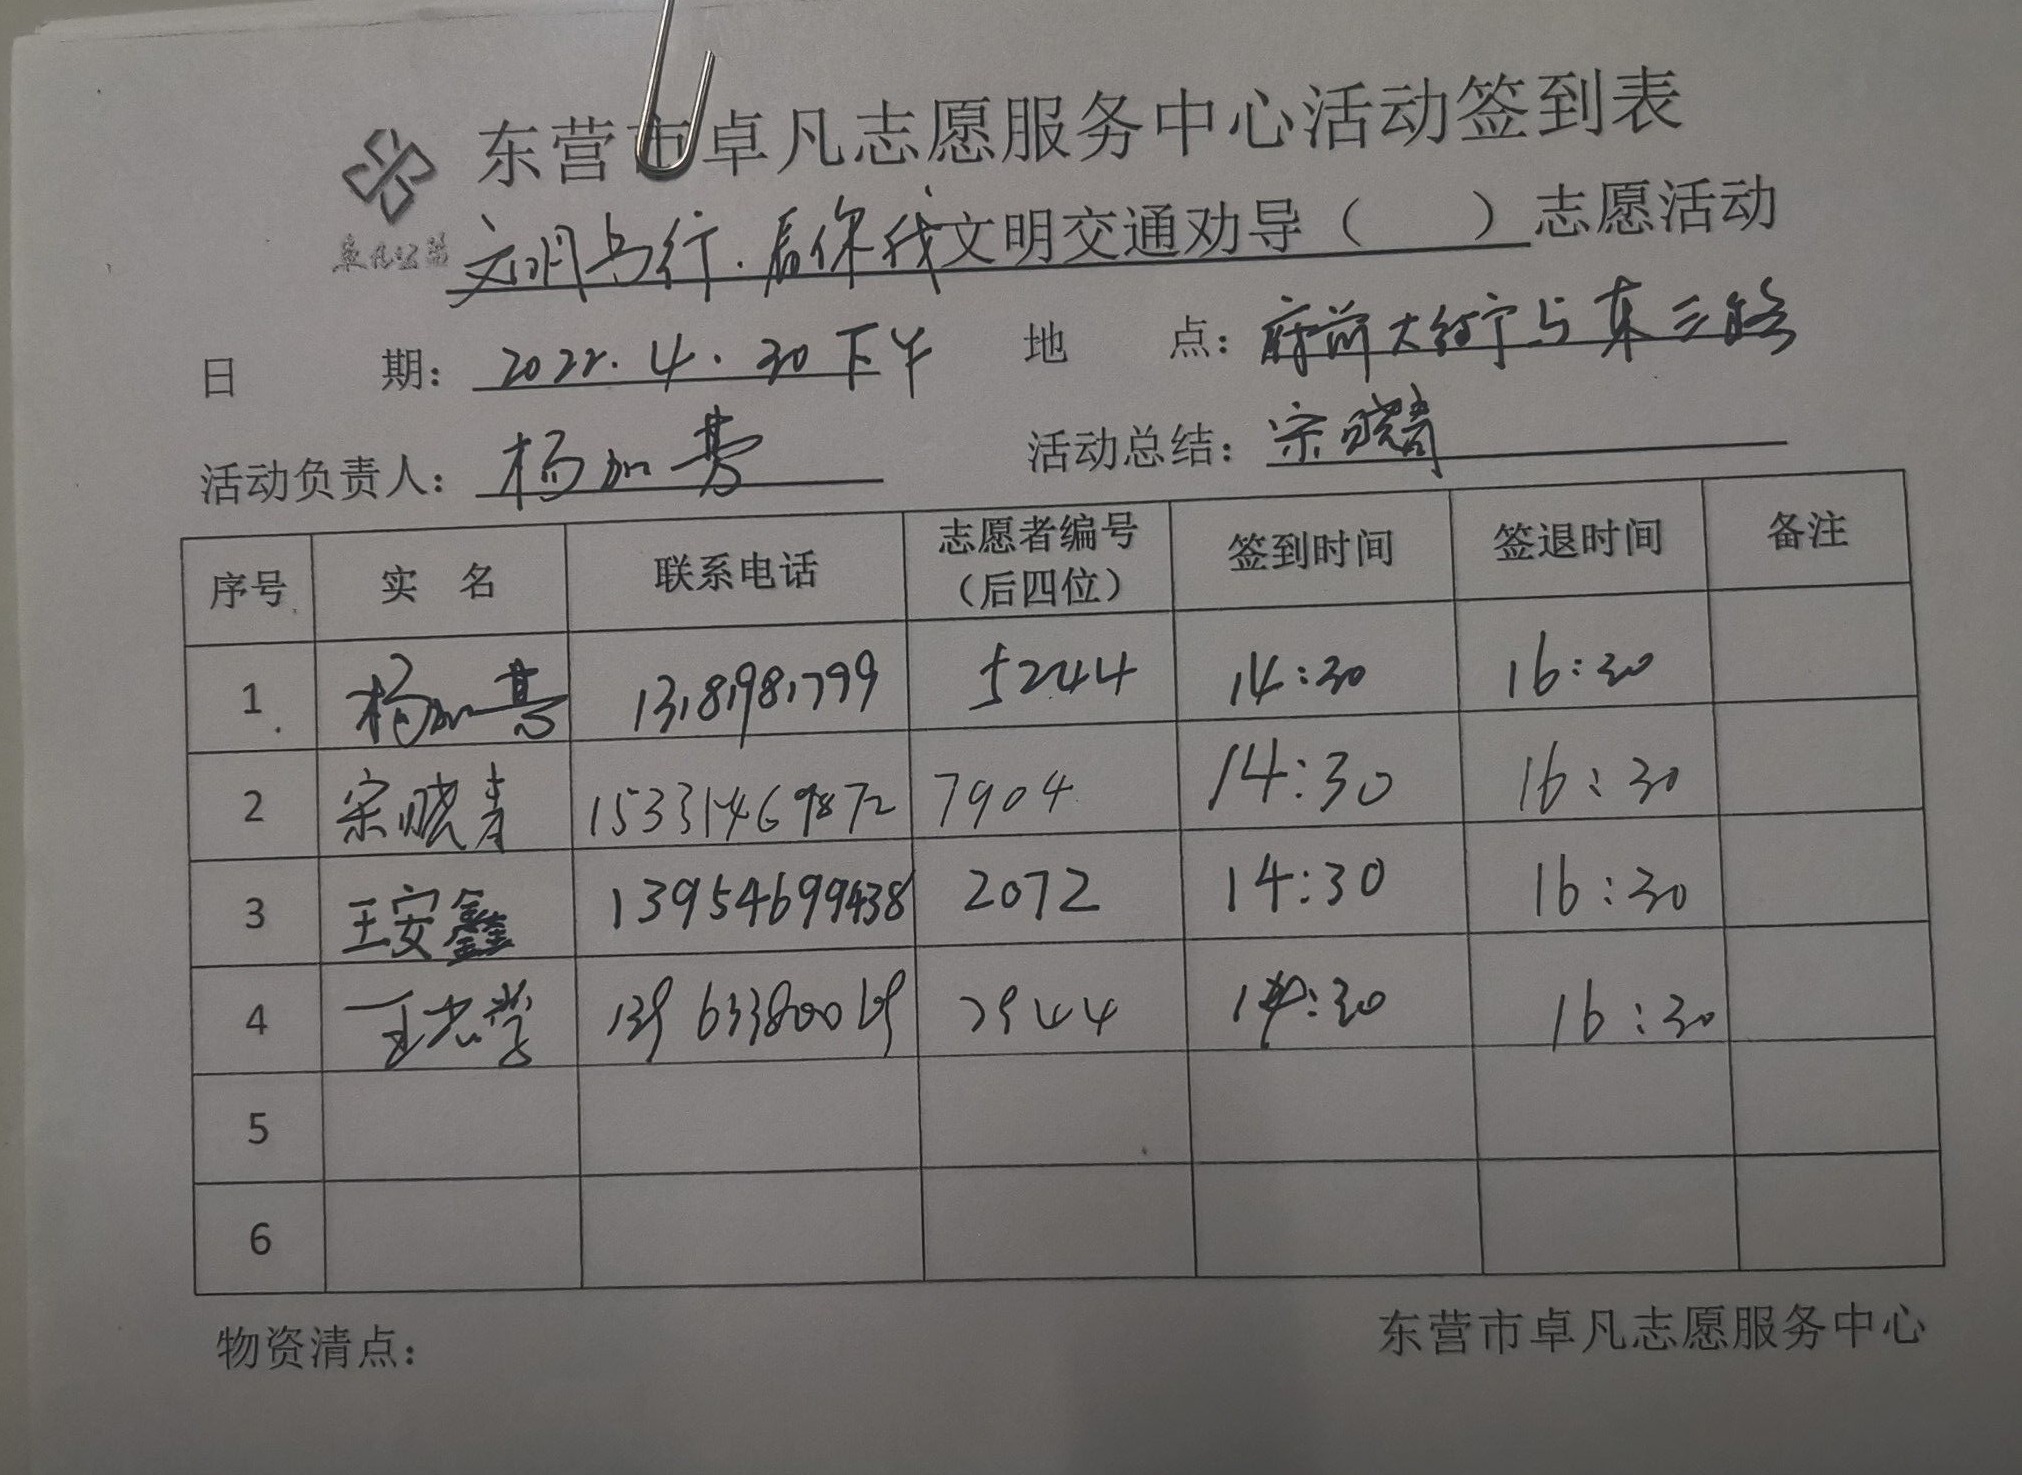 东营市卓凡志愿服务中心活动签到表
文明与行.有你我文明交通劝导（ ）志愿活动
日 期：2022.4.30下午 地 点：府前大街宁与东三路
活动负责人：杨加 活动总结：宋晓青
序号 实 名 联系电话 志愿者编号（后四位） 签到时间 签退时间 备注
1 杨加 5244 14:30 16:30
2 宋晓青 15331469872 7904 14:30 16:30
3 王安鑫 13954699438 2072 14:30 16:30
4 王志学 7944 14:30 16:30
5
6
物资清点： 东营市卓凡志愿服务中心